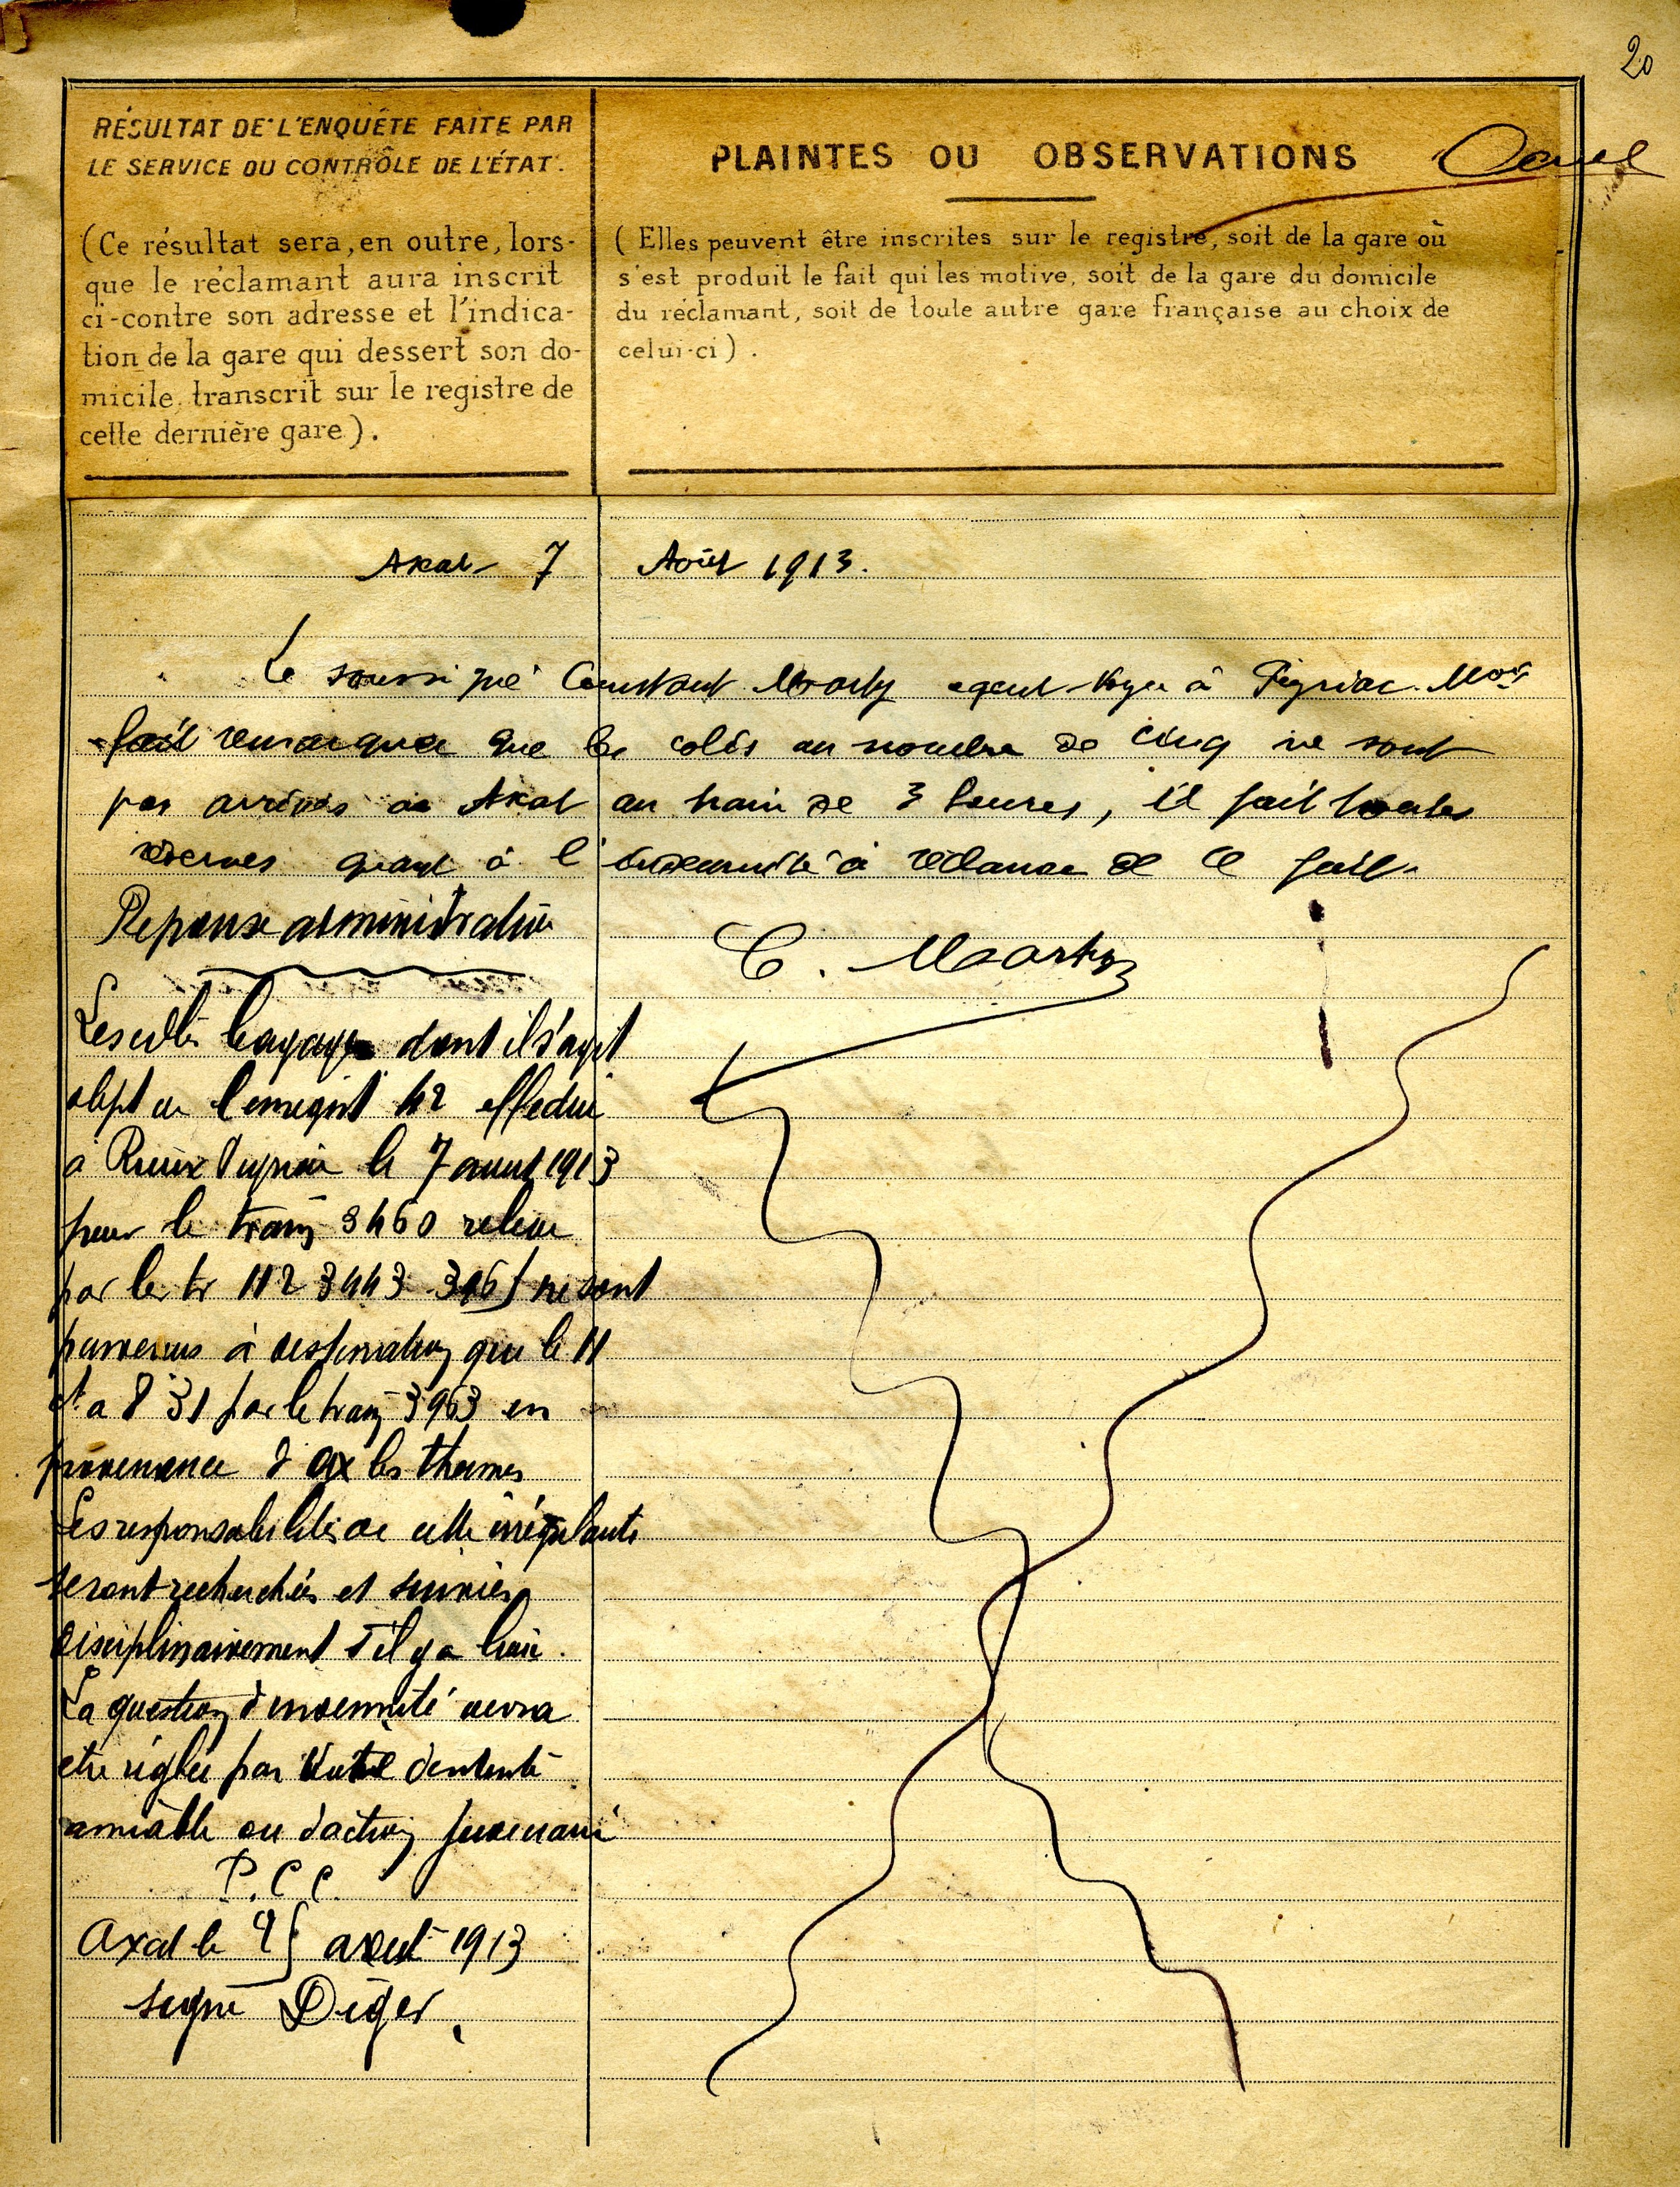 20
RÉSULTAT DE L'ENQUÊTE FAITE PAR
LE SERVICE DU CONTRÔLE DE L'ÉTAT.
(Ce résultat sera, en outre, lors-
que le réclamant aura inscrit
ci-contre son adresse et l'indica-
tion de la gare qui dessert son do-
micile, transcrit sur le registre de
cette dernière gare).
PLAINTES OU OBSERVATIONS
(Elles peuvent être inscrites sur le registre, soit de la gare où
s'est produit le fait qui les motive, soit de la gare du domicile
du réclamant, soit de toute autre gare française au choix de
celui-ci).
Axat 7 Août 1913.
Le soussigné Constant Marty agent-voyer à Peyriac-Mor
fait remarquer que les colis au nombre de cinq ne sont
pas arrivés à Axat au train de 3 heures, il fait toutes
réserves quant à l'indemnité à réclamer de ce fait.
C. Marty
Réponse administrative
Les colis bagages dont il s'agit
objet de l'enregist 42 effectué
à Rieux Peyriac le 7 aout 1913
pour le train 3460 relevé
par les tr 112 3443 ne sont
parvenus à destination que le 11
ct a 8 31 par le train 3963 en
provenance d'ax les thermes
Les responsabilités de cette irrégularité
seront recherchées et suivies
disciplinairement s'il y a lieu.
La question d'indemnité devra
etre réglée par d'entente
amiable ou d'action judiciaire
P. C C.
Axat le aout 1913
signé Diger